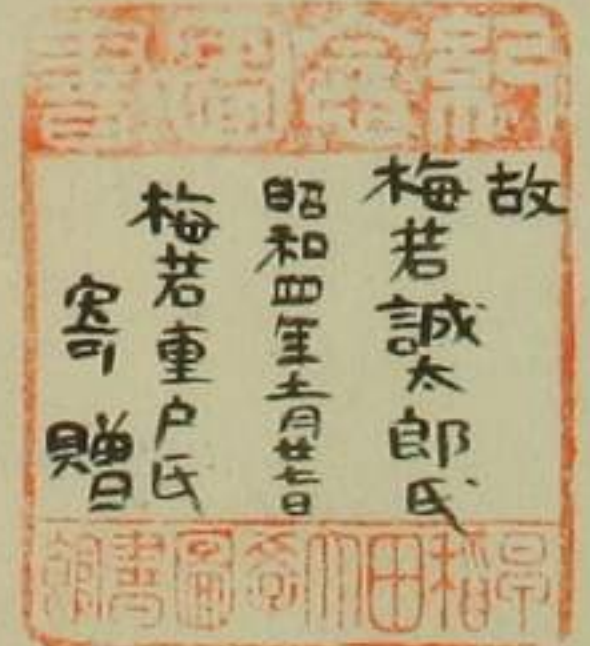 紀念圖書
故
梅若誠太郎氏
昭和四年十一月廿七日
梅若重户氏
寄贈
早稻田大學圖書館